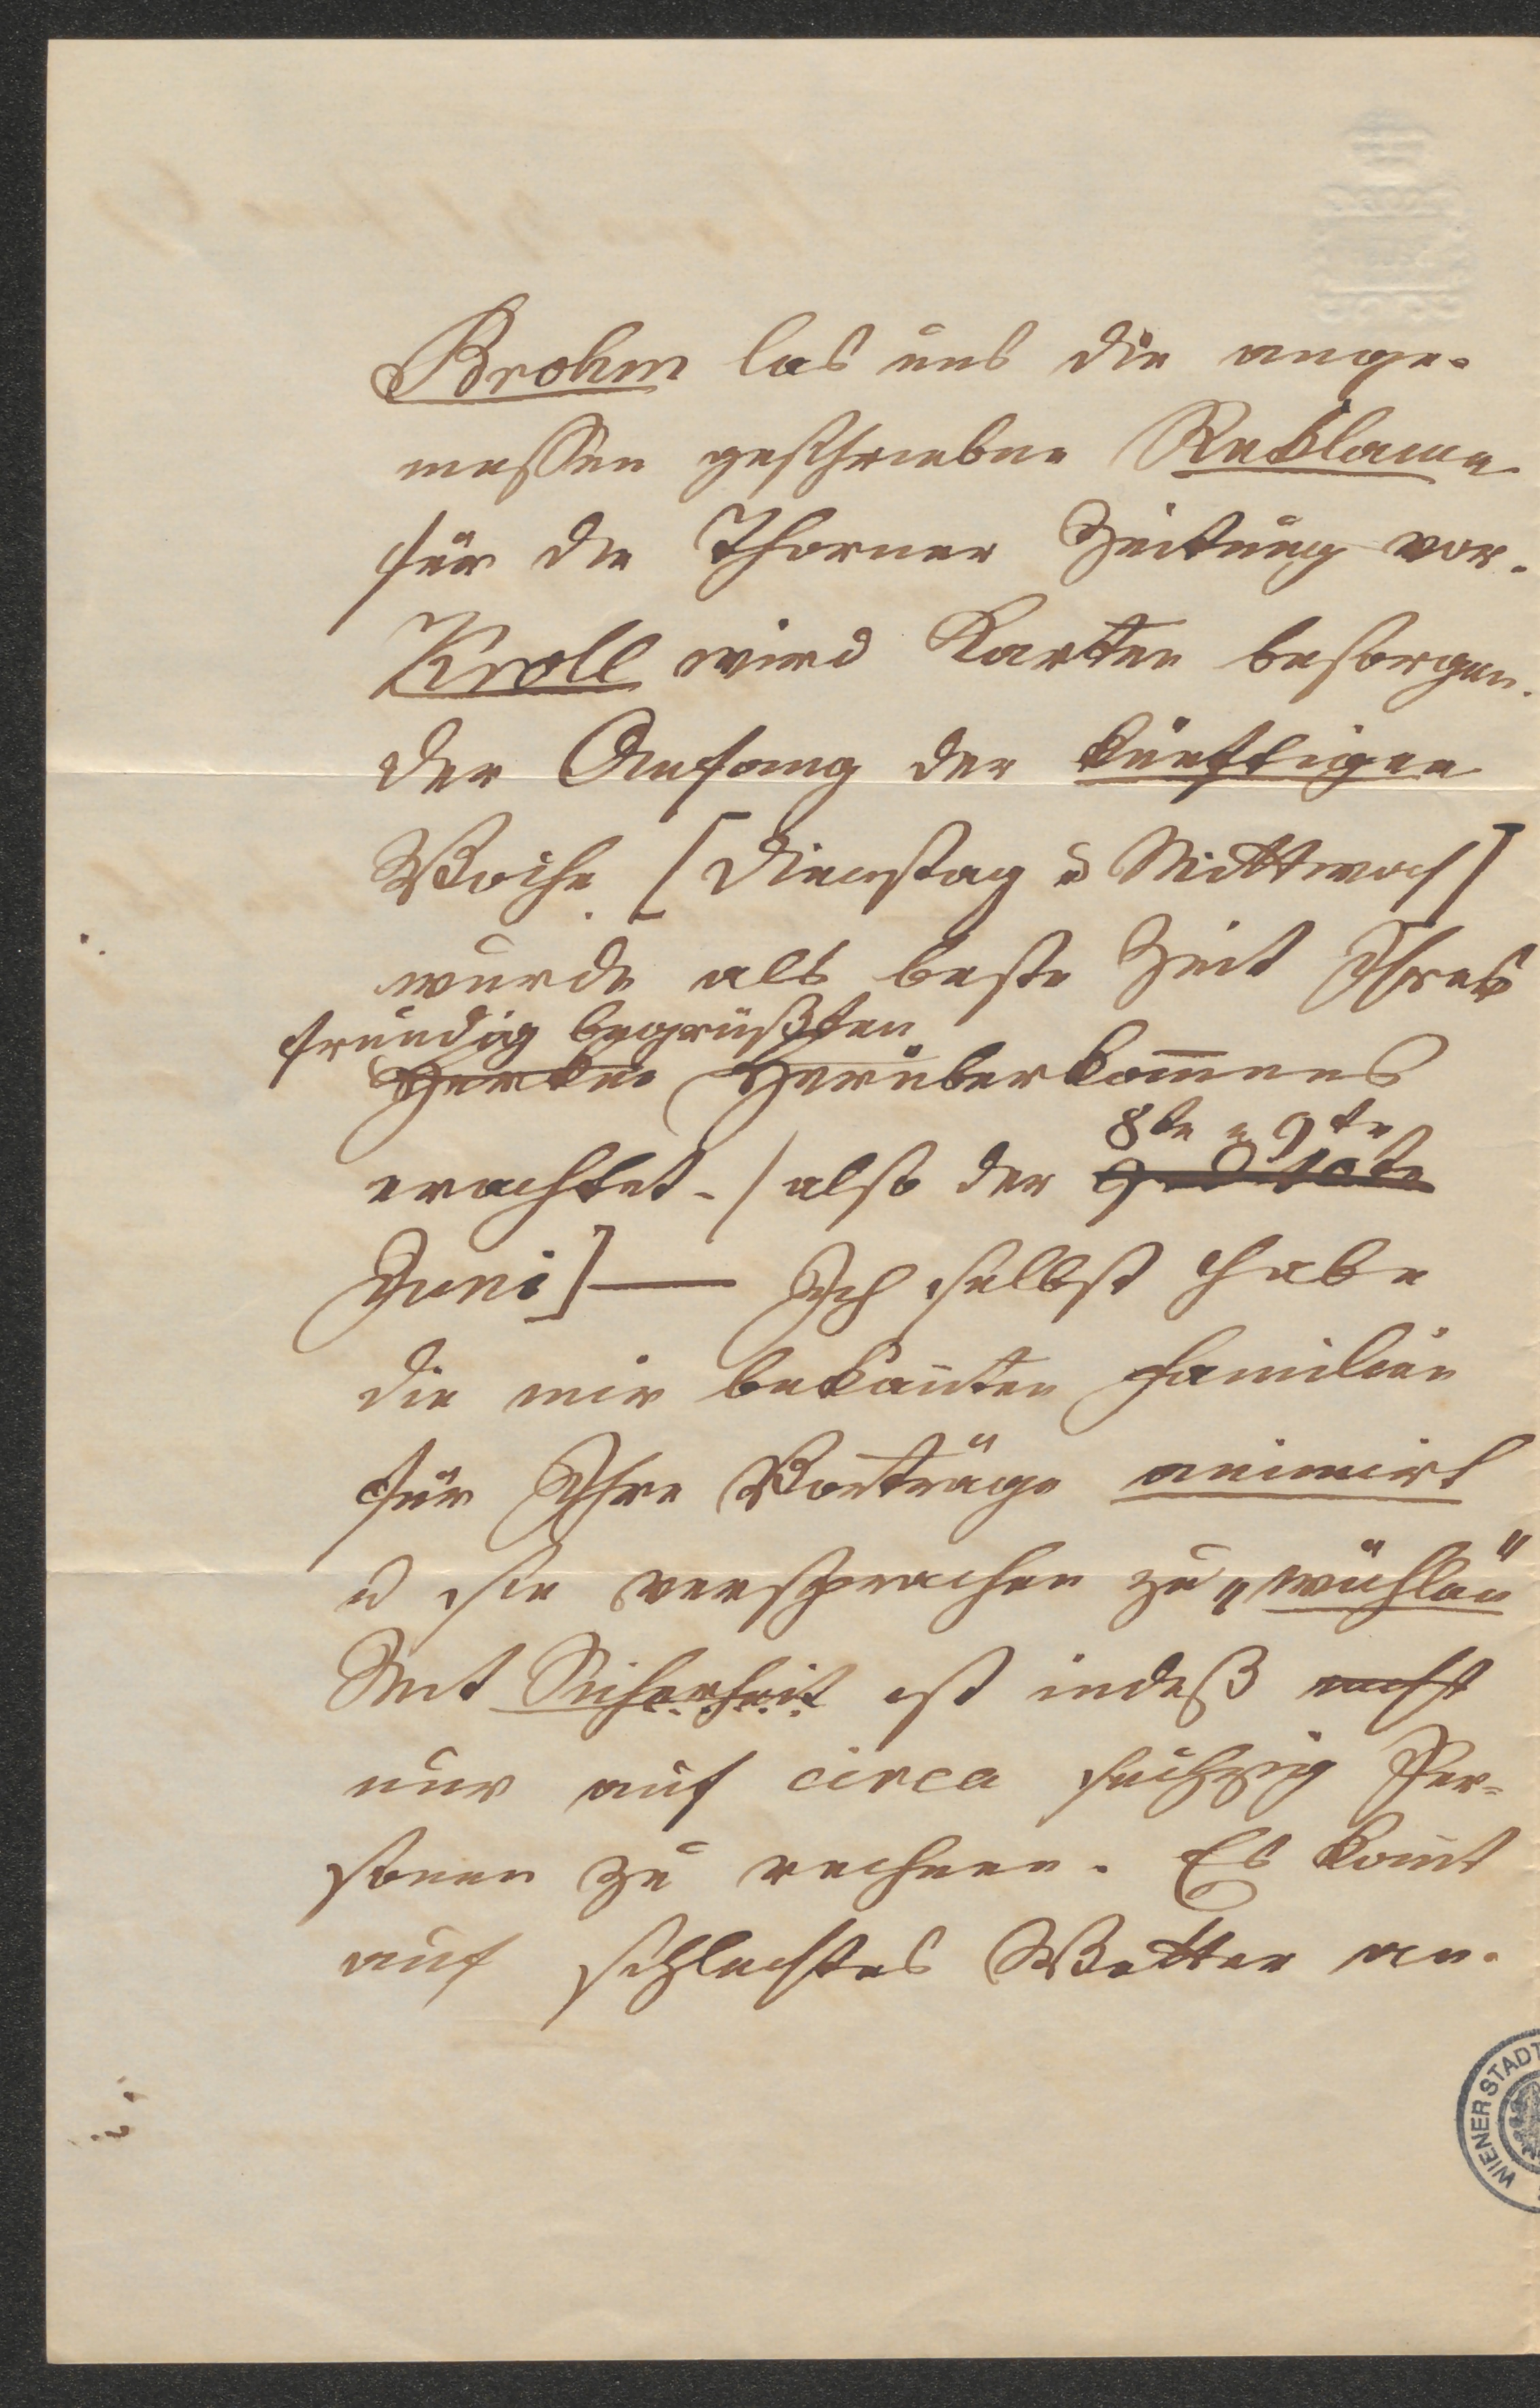 Brohm las uns die ange-
messen geschriebne Reklame
für die Thorner Zeitung vor.
Kroll wird Karten besorgen.
Der Anfang der künftigen
Woche [Dienstag u Mittwoch]
wurde als beste Zeit Ihres
freudig begrüßten
Herüberkom̅ens
8te u 9te
erachtet. [also der 9 u 10te
Juni] — Ich selbst habe
die mir bekan̅ten Familien
für Ihre Vorträge animirt
u sie versprachen zu „wühlen"
Mit Sicherheit ist indeß nicht
nur auf circa sechzig Per-
sonen zu rechnen. Es kom̅t
auf schlechtes Wetter an.
WIENER STADT